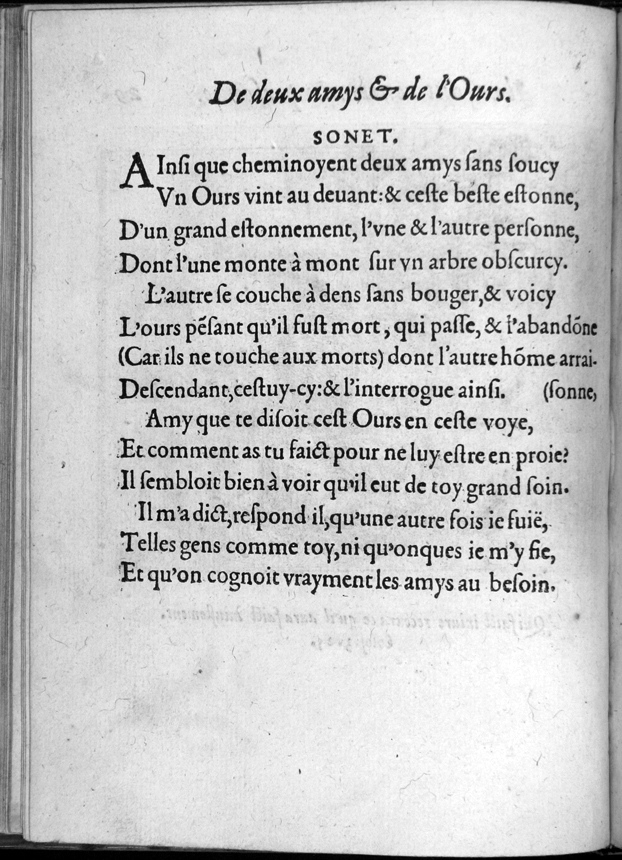 De deux amys & de l'Ours.
SONET.
AInſi que cheminoyent deux amys ſans ſoucy
Vn Ours vint au deuant:& ceſte beſte eſtonne,
D'un grand eſtonnement, l'vne & l'autre perſonne,
Dont l'une monte à mont ſur vn arbre obſcurcy.
L'autre ſe couche à dens ſans bouger,& voicy
L'ours pẽſant qu'il fuſt mort, qui paſſe, & l'abandõne
(Car ils ne touche aux morts) dont l'autre hõme arrai-
Deſcendant,ceſtuy-cy:& l'interrogue ainſi. (ſonne,
Amy que te diſoit ceſt Ours en ceſte voye,
Et comment as tu faict pour ne luy eſtre en proie?
Il ſembloit bien à voir qu'il eut de toy grand ſoin.
Il m'a dict,reſpond il,qu'une autre fois ie fuië,
Telles gens comme toy,ni qu'onques ie m'y fie,
Et qu'on cognoit vrayment les amys au beſoin.